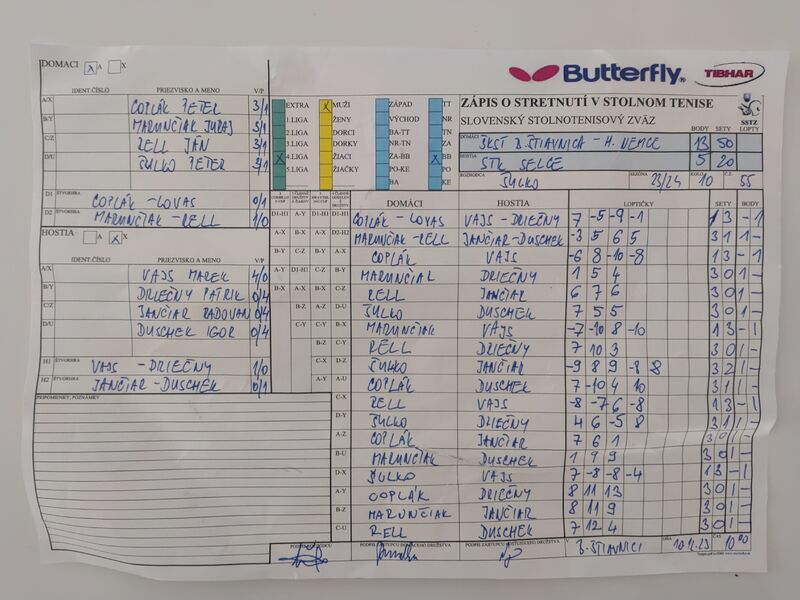 DOMACI X A X
Butterfly TIBHAR
IDENT.ČÍSLO PRIEZVISKO A MENO V/P
A/X COPLÁK PETER 3/1
B/Y MARUNČIAK JURAJ 3/1
C/Z RELL JÁN 3/1
D/U ŠULKO PETER 3/1
D1 ŠTVORHRA COPLÁK - LOVAS 0/1
D2 ŠTVORHRA MARUNČIAK - RELL 1/0
HOSTIA A X X
IDENT.ČÍSLO PRIEZVISKO A MENO V/P
A/X VAJS MAREK 4/0
B/Y DRIEČNY PATRIK 0/4
C/Z JANČIAR RADOVAN 0/4
D/U DUSCHEK IGOR 0/4
H1 ŠTVORHRA VAJS - DRIEČNY 1/0
H2 ŠTVORHRA JANČIAR - DUSCHEK 0/1
PRIPOMIENKY, POZNÁMKY
EXTRA X MUŽI ZÁPAD TT
1.LIGA ŽENY VÝCHOD NR
2.LIGA DORCI BA-TT TN
3.LIGA DORKY NR-TN ZA
X 4.LIGA ŽIACI ZA-BB X BB
5.LIGA ŽIAČKY PO-KE PO
BA KE
ZÁPIS O STRETNUTÍ V STOLNOM TENISE
SLOVENSKÝ STOLNOTENISOVÝ ZVÄZ
SSTZ
BODY SETY LOPTY
DOMÁCI B.ŠTIAVNICA - H. NEMCE 13 50
HOSTIA STK SELCE 5 20
ROZHODCA ŠULKO SEZÓNA 23/24 KOLO 10 Č.Z. 55
DOMÁCI HOSTIA LOPTIČKY SETY BODY
COPLÁK - LOVAS VAJS - DRIEČNY 7 -5 -9 -1 1 3 - 1
MARUNČIAK - RELL JANČIAR - DUSCHEK -3 5 6 5 3 1 1 -
COPLÁK VAJS -6 8 -10 -8 1 3 - 1
MARUNČIAK DRIEČNY 1 5 4 3 0 1 -
RELL JANČIAR 6 7 6 3 0 1 -
ŠULKO DUSCHEK 7 5 5 3 0 1 -
MARUNČIAK VAJS -7 -10 8 -10 1 3 - 1
RELL DRIEČNY 7 10 3 3 0 1 -
ŠULKO JANČIAR -9 8 9 -8 8 3 2 1 -
COPLÁK DUSCHEK 7 -10 4 10 3 1 1 -
RELL VAJS -8 -7 6 -8 1 3 - 1
ŠULKO DRIEČNY 4 6 -5 8 3 1 1 -
COPLÁK JANČIAR 7 6 1 3 0 1 -
MARUNČIAK DUSCHEK 1 9 9 3 0 1 -
ŠULKO VAJS 7 -8 -8 -4 1 3 - 1
COPLÁK DRIEČNY 8 11 13 3 0 1 -
MARUNČIAK JANČIAR 8 11 9 3 0 1 -
RELL DUSCHEK 7 12 4 3 0 1 -
PODPIS ZÁSTUPCU DOMÁCEHO DRUŽSTVA PODPIS ZÁSTUPCU HOSTUJÚCEHO DRUŽSTVA V B.ŠTIAVNICI DŇA 10.11.23 ČAS 10 00